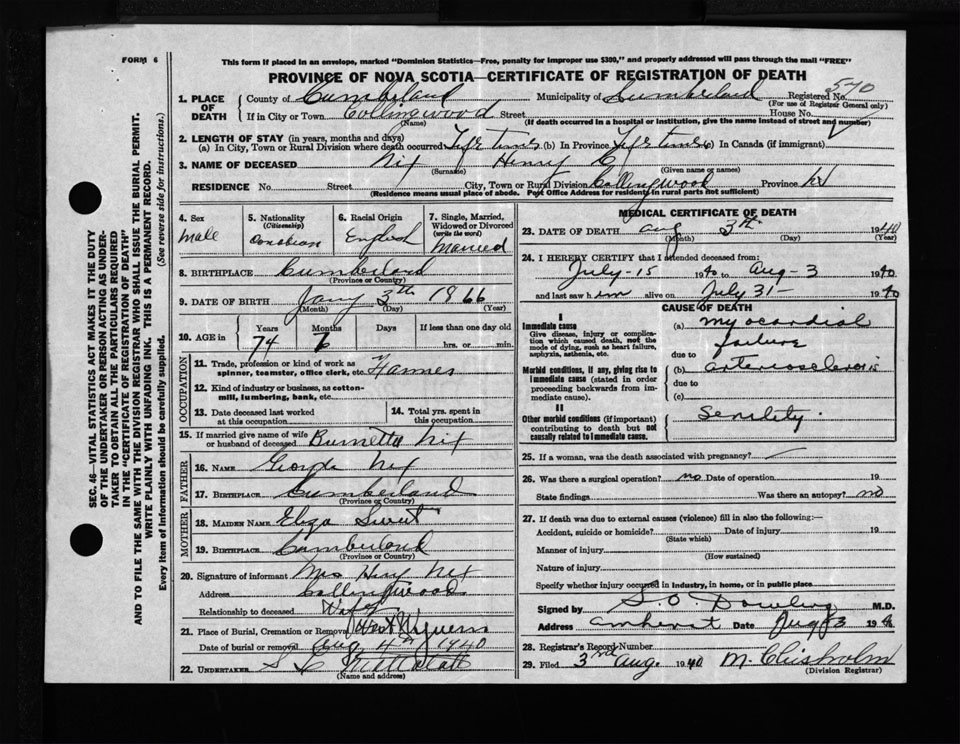 FORM 6
This form if placed in an envelope, marked "Dominion Statistics—Free, penalty for improper use $300," and properly addressed will pass through the mail "FREE"
PROVINCE OF NOVA SCOTIA—CERTIFICATE OF REGISTRATION OF DEATH
570
1. PLACE OF DEATH County of Cumberland Municipality of Cumberland Registered No.
(For use of Registrar General only)
If in City or Town Collingwood Street House No.
(Name) (If death occurred in a hospital or institution, give the name instead of street and number)
2. LENGTH OF STAY (in years, months and days)
(a) In City, Town or Rural Division where death occurred Life time (b) In Province Life time (c) In Canada (if immigrant)
3. NAME OF DECEASED Nix Henry C
(Surname) (Given name or names)
RESIDENCE No. Street City, Town or Rural Division Collingwood Province NS
(Residence means usual place of abode. Post Office Address for residents in rural parts not sufficient)
4. Sex Male
5. Nationality (Citizenship) Canadian
6. Racial Origin English
7. Single, Married, Widowed or Divorced (write the word) Married
8. BIRTHPLACE Cumberland
(Province or Country)
9. DATE OF BIRTH Jany 3th 1866
(Month) (Day) (Year)
10. AGE in Years Months Days If less than one day old
74 6 hrs. or min.
OCCUPATION
11. Trade, profession or kind of work as spinner, teamster, office clerk, etc. Farmer
12. Kind of industry or business, as cotton-mill, lumbering, bank, etc.
13. Date deceased last worked at this occupation
14. Total yrs. spent in this occupation
15. If married give name of wife or husband of deceased Burnetta Nix
FATHER
16. NAME George Nix
17. BIRTHPLACE Cumberland
(Province or Country)
MOTHER
18. MAIDEN NAME Eliza Swet
19. BIRTHPLACE Cumberland
(Province or Country)
20. Signature of informant Mrs Henry Nix
Address Collingwood
Relationship to deceased Wife
21. Place of Burial, Cremation or Removal
Date of burial or removal Aug 4th 1940
22. UNDERTAKER
(Name and address)
MEDICAL CERTIFICATE OF DEATH
23. DATE OF DEATH Aug 3th 1940
(Month) (Day) (Year)
24. I HEREBY CERTIFY that I attended deceased from:
July - 15 1940 to Aug - 3 1940
and last saw him alive on July 31 - 1940
CAUSE OF DEATH
I
Immediate cause
Give disease, injury or complication which caused death, not the mode of dying, such as heart failure, asphyxia, asthenia, etc.
(a) myocardial failure
due to
Morbid conditions, if any, giving rise to immediate cause (stated in order proceeding backwards from immediate cause).
(b) arteriosclerosis
due to
(c)
II
Other morbid conditions (if important) contributing to death but not causally related to immediate cause.
Senility.
25. If a woman, was the death associated with pregnancy?
26. Was there a surgical operation? no Date of operation 19
State findings Was there an autopsy? no
27. If death was due to external causes (violence) fill in also the following:—
Accident, suicide or homicide? Date of injury 19
(State which)
Manner of injury
(How sustained)
Nature of injury
Specify whether injury occurred in industry, in home, or in public place
Signed by S. O. Dowling M.D.
Address Amherst Date Aug 3 1940
28. Registrar's Record Number
29. Filed 3rd Aug. 1940 M. Chisholm
(Division Registrar)
SEC. 46—VITAL STATISTICS ACT MAKES IT THE DUTY
OF THE UNDERTAKER OR PERSON ACTING AS UNDER-
TAKER TO OBTAIN ALL THE PARTICULARS REQUIRED
IN THE "CERTIFICATE OF REGISTRATION OF DEATH"
AND TO FILE THE SAME WITH THE DIVISION REGISTRAR WHO SHALL ISSUE THE BURIAL PERMIT.
WRITE PLAINLY WITH UNFADING INK. THIS IS A PERMANENT RECORD.
Every item of information should be carefully supplied. (See reverse side for instructions.)